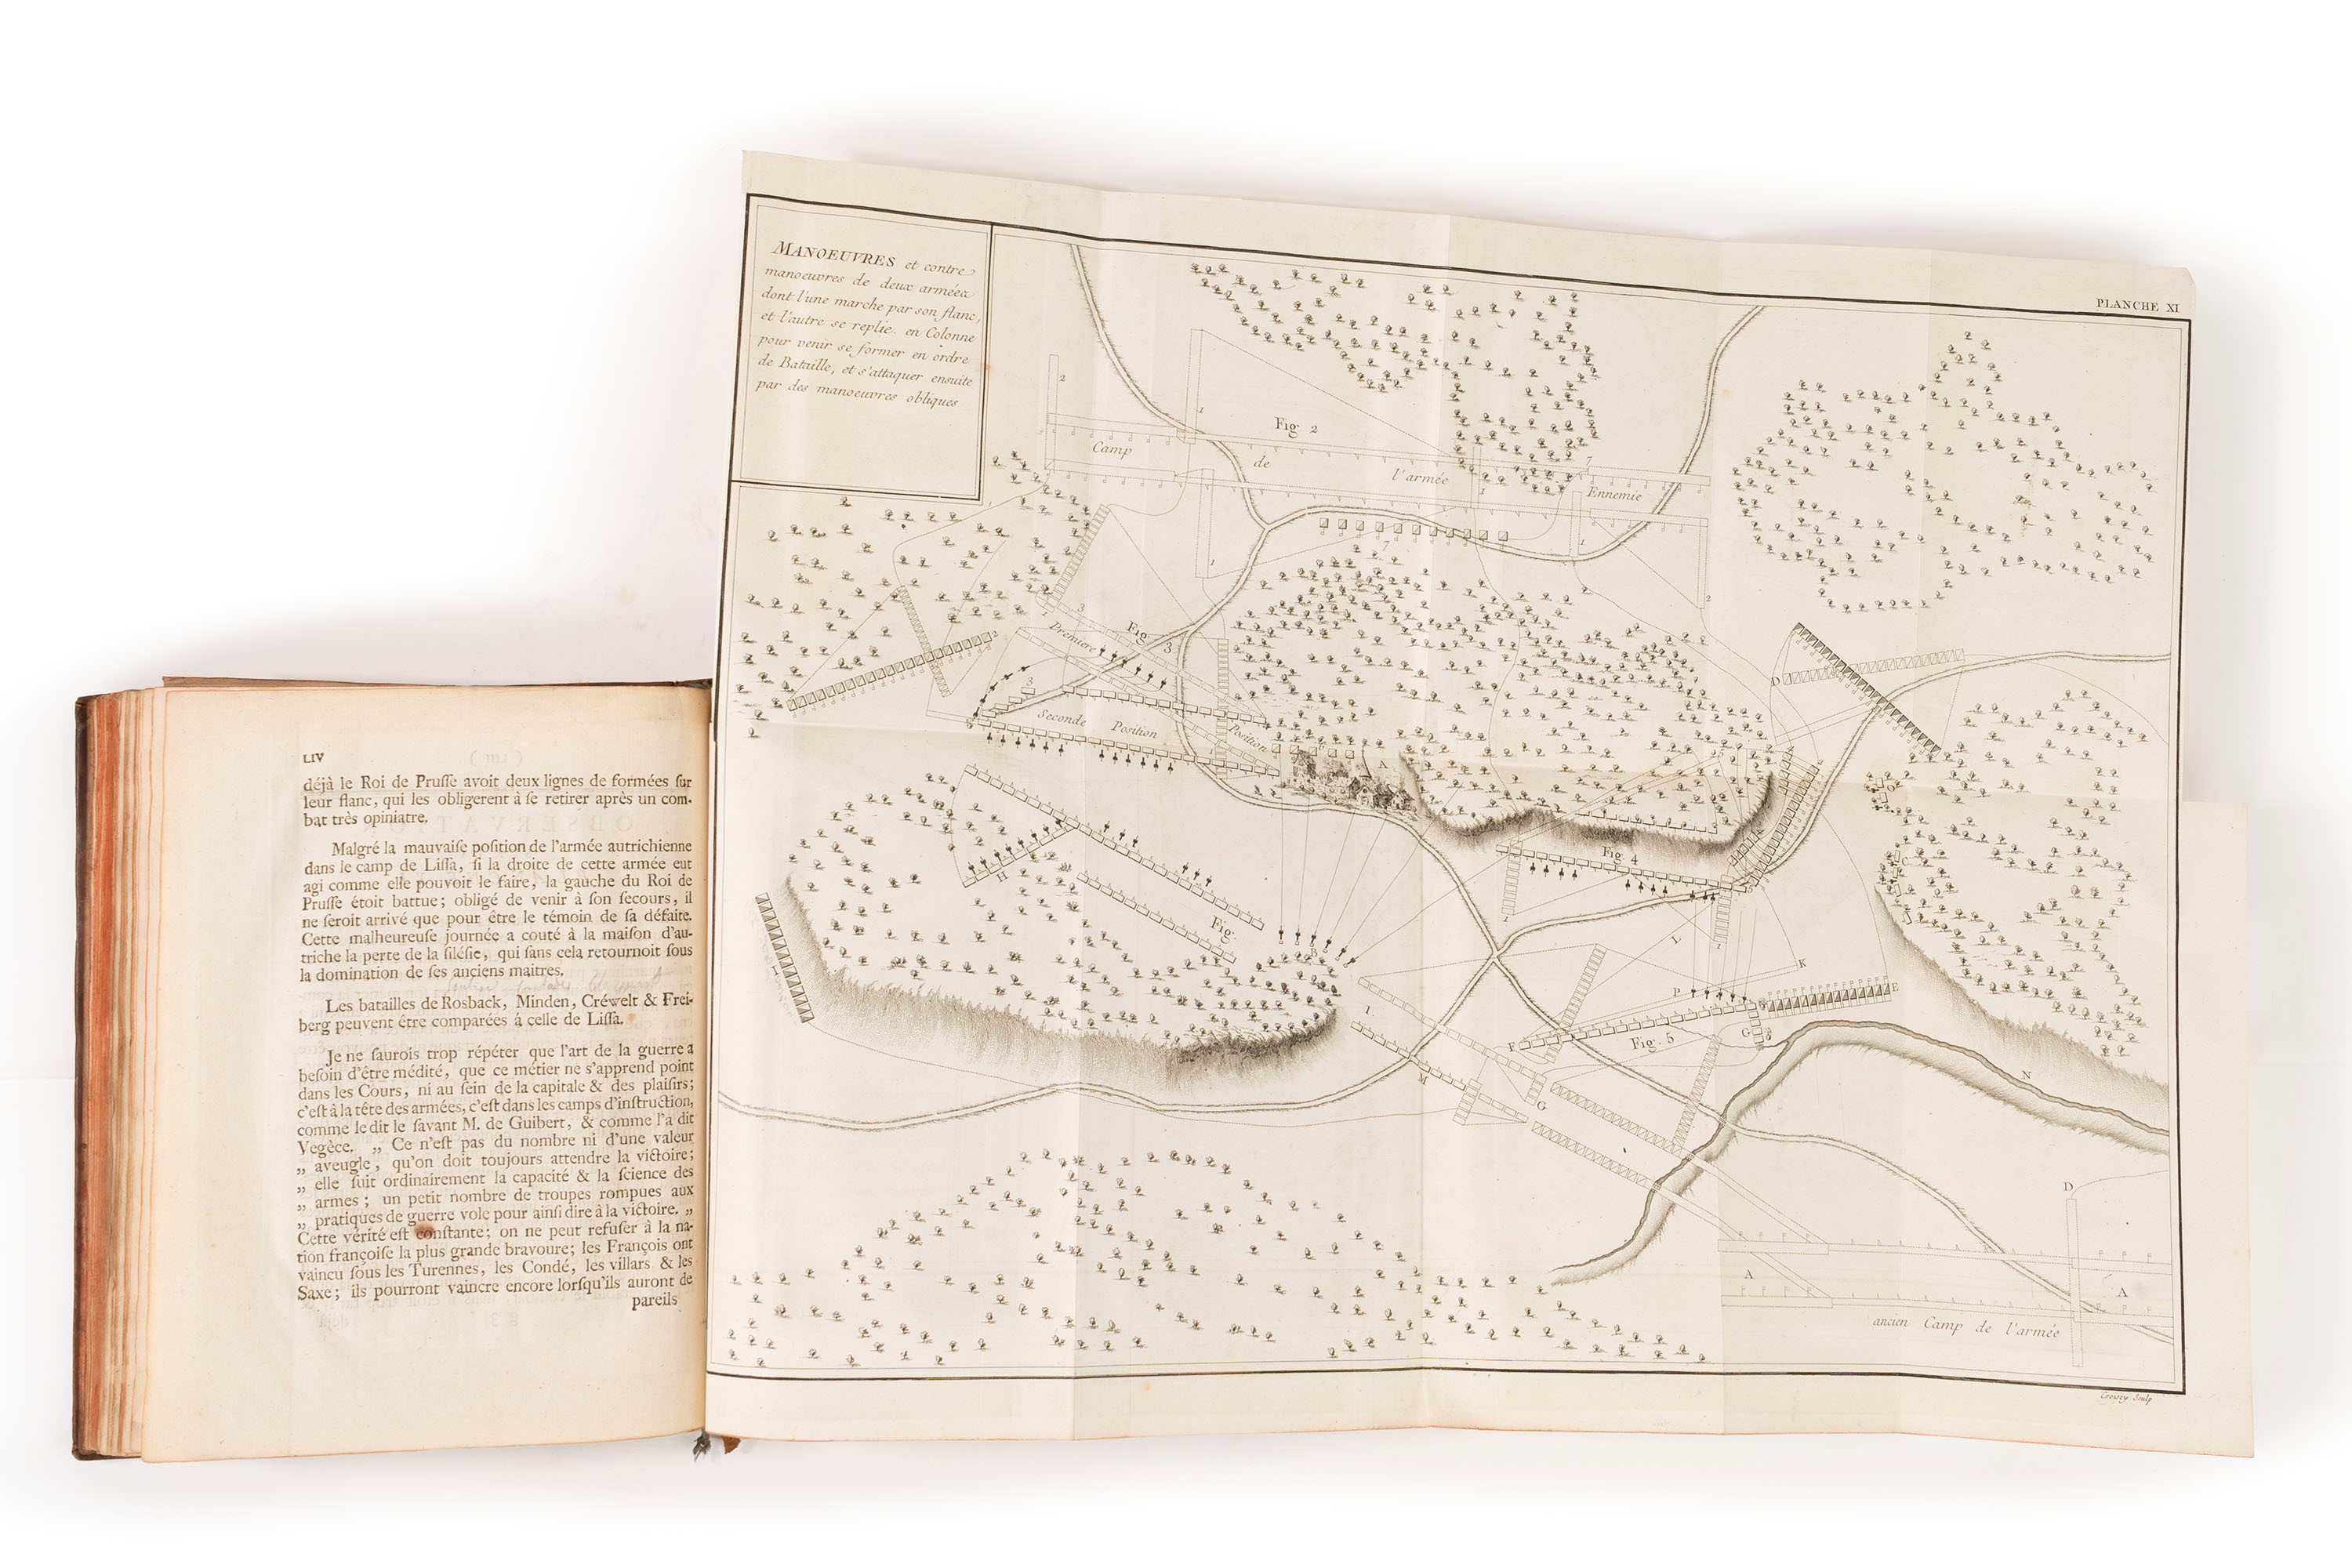 LIV
déjà le Roi de Prusse avoit deux lignes de formées sur
leur flanc, qui les obligerent à se retirer après un com-
bat très opiniatre.
Malgré la mauvaise position de l'armée autrichienne
dans le camp de Lissa, si la droite de cette armée eut
agi comme elle pouvoit le faire, la gauche du Roi de
Prusse étoit battue; obligé de venir à son secours, il
ne seroit arrivé que pour être le témoin de sa défaite.
Cette malheureuse journée a couté à la maison d'au-
triche la perte de la silésie, qui sans cela retournoit sous
la domination de ses anciens maitres.
Les batailles de Rosback, Minden, Créwelt & Frei-
berg peuvent être comparées à celle de Lissa.
Je ne saurois trop répéter que l'art de la guerre a
besoin d'être médité, que ce métier ne s'apprend point
dans les Cours, ni au sein de la capitale & des plaisirs;
c'est à la tête des armées, c'est dans les camps d'instruction,
comme le dit le savant M. de Guibert, & comme l'a dit
Vegèce. „ Ce n'est pas du nombre ni d'une valeur
„ aveugle, qu'on doit toujours attendre la victoire;
„ elle suit ordinairement la capacité & la science des
„ armes; un petit nombre de troupes rompues aux
„ pratiques de guerre vole pour ainsi dire à la victoire. „
Cette vérité est constante; on ne peut refuser à la na-
tion françoise la plus grande bravoure; les François ont
vaincu sous les Turennes, les Condé, les villars & les
Saxe; ils pourront vaincre encore lorsqu'ils auront de
pareils
MANOEUVRES et contre
manoeuvres de deux armées
dont l'une marche par son flanc,
et l'autre se replie en Colonne
pour venir se former en ordre
de Bataille, et s'attaquer ensuite
par des manoeuvres obliques
PLANCHE XI
Fig 2
Camp de l'armée Ennemie
Fig. 3
Premiere Position
Seconde Position
A
Fig. 4
H
Fig.
B
L
K
P
E
F
Fig. 5
G
I
M
G
N
D
D
A
A
ancien Camp de l'armée
Croisey Sculp